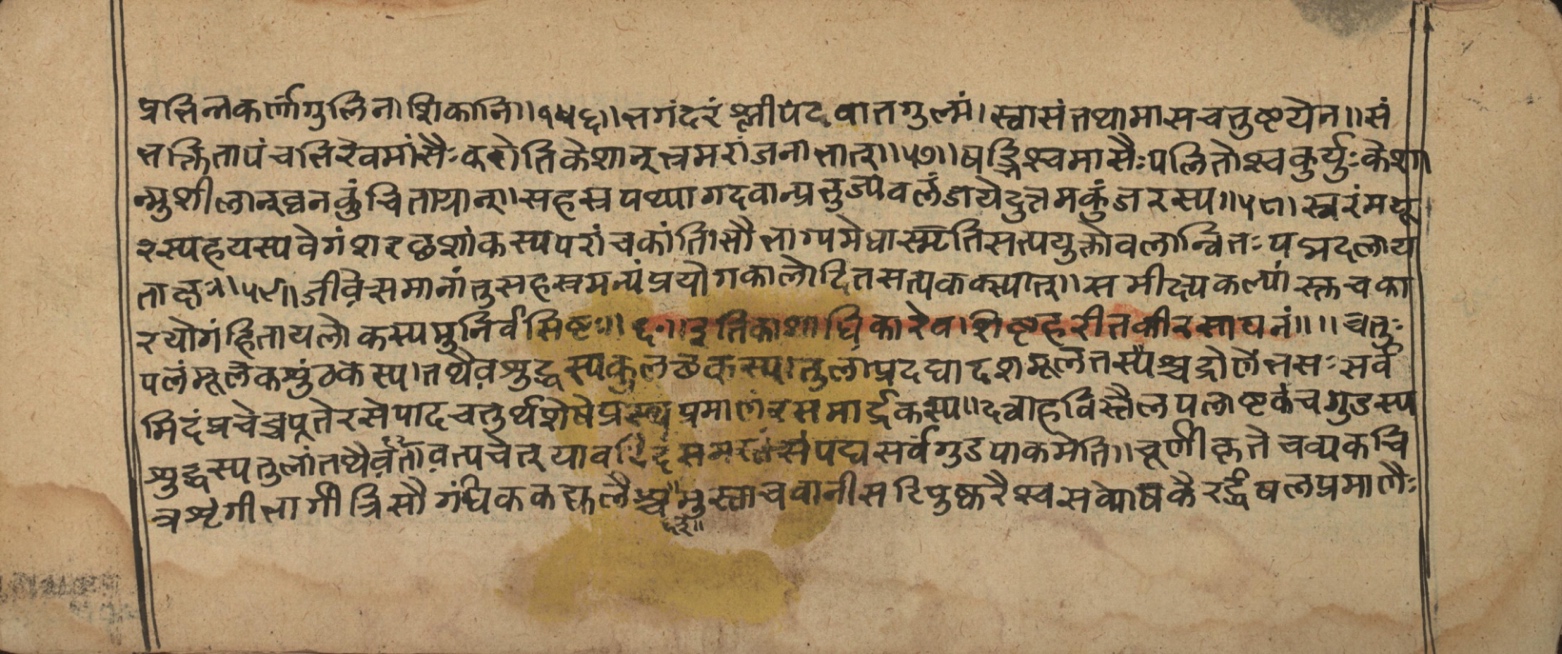 प्रभिन्नकर्णांगुलिनाशिकानि॥१५६॥भगंदरंश्लीपदवातगुल्मं।स्वासंतथामासचतुष्टयेन॥सं
भक्षितापंचभिरेवमांसैःकरोतिकेशान्भ्रमरांजनाभात्॥५७॥षड्भिश्वमासैःपलितोश्वकुर्युःकेशा
न्मुशीलान्घनकुंचिताग्रान्॥सहस्रपथ्यागदवान्प्रभुज्यवलंजयेदुत्तमकुंजरस्य॥५८।स्वरंमयू
रस्यहयस्यवेगंशरछशांकस्यपरांचकांति।सौभाग्यमेधास्मृतिसत्ययुक्तोवलान्वितःपद्मदलाय
ताक्षः।५९॥जीवेत्समानांतुसहस्रमन्यंप्रयोगकालोदितसत्यवाक्स्यात्॥समीक्ष्यकल्पांस्तचका
रयोगंहितायलोकस्यमुनिर्वसिष्टः॥६०॥इतिकाशाधिकारेवाशिष्टहरीतकीरसायनं॥॥चतुः
पलंमूलकशुंठकस्य।तथैवशुद्धस्यकुलछकस्य।तुलाप्रदद्याद्दशमूलतस्यैश्चद्रोणेंभसःसर्व
मिदंपचेच्चपूतेरसेपादचतुर्थशेषेप्रस्थप्रमाणंरसमार्द्रकस्य॥दवाहविस्तैलपलाष्टकंचगुडस्य
शुद्धस्यतुलांतथैवतांवत्पचेत्यावदिदंसमस्तंसंपद्यसर्वगुडपाकमेति॥चूर्णीकृतेचव्यकचि
त्रशृंगीभार्गीत्रिसौगंधिककट्फलैश्चमुस्ताचवानीसरिपुष्करैश्वसव्योषकैरर्द्धषलप्रमाणैः
६१॥